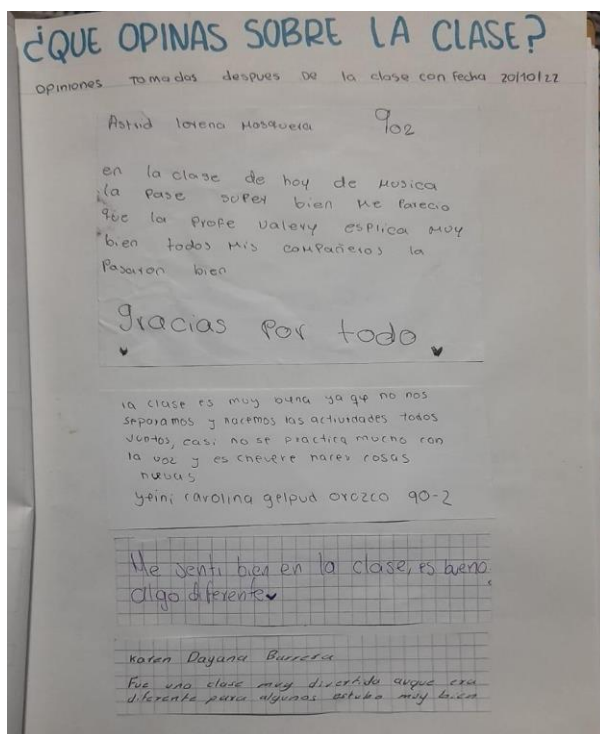 ¿QUE OPINAS SOBRE LA CLASE?
opiniones tomadas despues de la clase con fecha 20/10/22
Astrid lorena Mosquera 902
en la clase de hoy de Musica
la Pase super bien Me Parecio
que la Profe valery esplica Muy
bien todos Mis comPañeros la
Pasaron bien
gracias Por todo
la clase es muy buna ya qe no nos
separamos y hacemos las actividades todos
juntos, casi no se practica mucho con
la voz y es chevere hacer cosas
nuevas
yeini carolina gelpud orozco 90-2
Me senti bien en la clase, es bueno
algo diferente
Karen Dayana Barrera
Fue una clase muy divertida auque era
diferente para algunas estubo muy bien